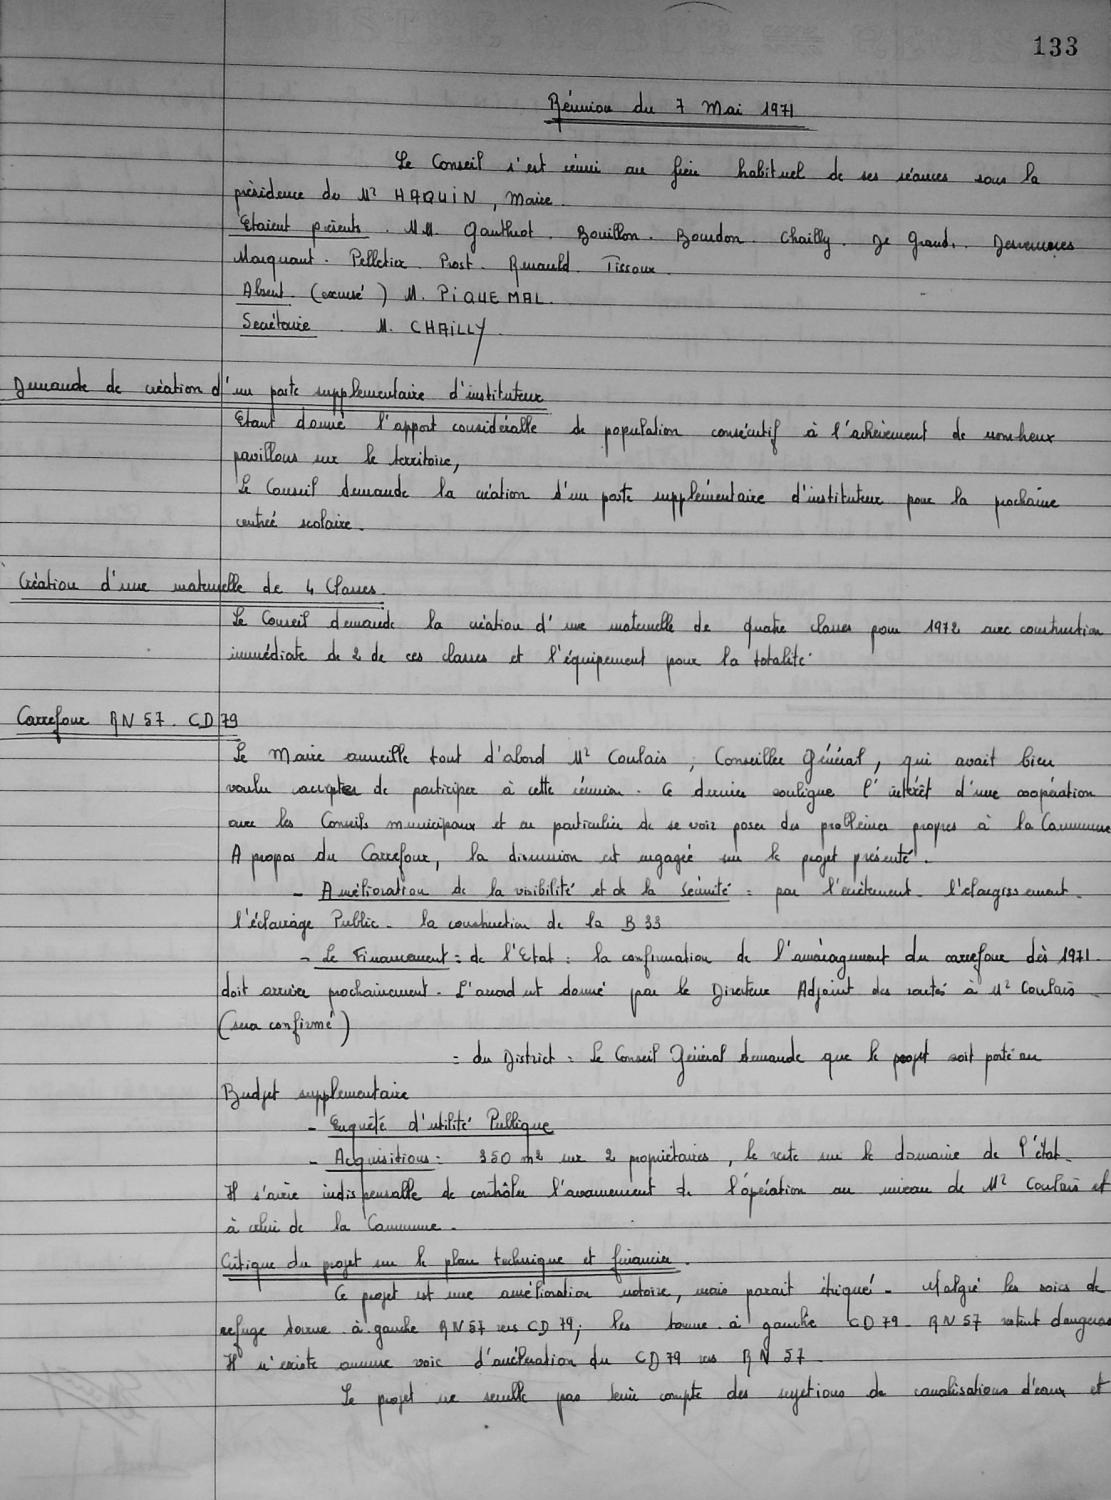 133
Réunion du 7 Mai 1971
Le Conseil s'est réuni au lieu habituel de ses séances sous la
présidence de Mr HAQUIN, Maire.
Etaient présents. MM. Gauthrot. Bouillon. Bourdon. Chailly. Le Grand.
Marquant. Pelletier. Prost. Renauld. Tissoux.
Absent (excusé) M. PIQUEMAL.
Secrétaire M. CHAILLY.
Demande de création d'un poste supplémentaire d'instituteur
Etant donné l'apport considérable de population consécutif à l'achèvement de nombreux
pavillons sur le territoire,
Le Conseil demande la création d'un poste supplémentaire d'instituteur pour la prochaine
rentrée scolaire.
Création d'une maternelle de 4 Classes.
Le Conseil demande la création d'une maternelle de quatre classes pour 1972 avec construction
immédiate de 2 de ces classes et l'équipement pour la totalité.
Carrefour RN 57. CD 79
Le Maire accueille tout d'abord Mr Coulais, Conseiller Général, qui avait bien
voulu accepter de participer à cette réunion. Ce dernier souligne l'intérêt d'une coopération
avec les Conseils municipaux et en particulier de se voir poser des problèmes propres à la Commune
A propos du Carrefour, la discussion est engagée sur le projet présenté.
- Amélioration de la visibilité et de la Sécurité = par l'écrêtement. l'élargissement.
l'éclairage Public. la construction de la B 33
- Le Financement = de l'Etat : la confirmation de l'aménagement du carrefour dès 1971.
doit arriver prochainement. L'accord est donné par le Directeur Adjoint des routes à Mr Coulais
(sera confirmé)
= du District = Le Conseil Général demande que le projet soit porté au
Budget supplémentaire
- Enquête d'utilité Publique
- Acquisitions : 350 m2 sur 2 propriétaires, le reste sur le domaine de l'état.
Il s'avère indispensable de contrôler l'avancement de l'opération au niveau de Mr Coulais et
à celui de la Commune.
Critique du projet sur le plan technique et financier.
Ce projet est une amélioration notoire, mais parait étriqué. Malgré les voies de
refuge tourne à gauche RN 57 vers CD 79, les tourne à gauche CD 79. RN 57 restent dangereux
Il n'existe aucune voie d'accélération du CD 79 vers RN 57.
Le projet ne semble pas tenir compte des sujétions de canalisations d'eaux et